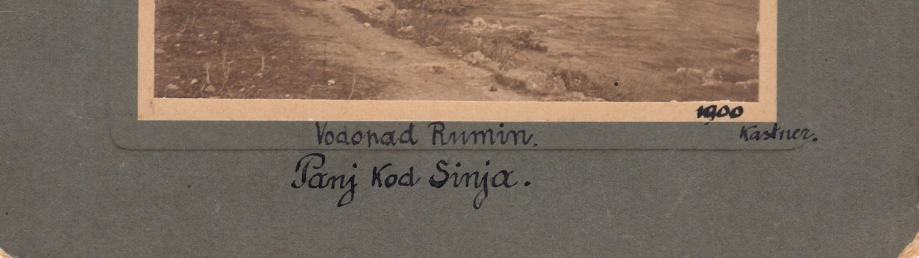 1900
Vodopad Rumin.
Kastner.
Panj Kod Sinja.